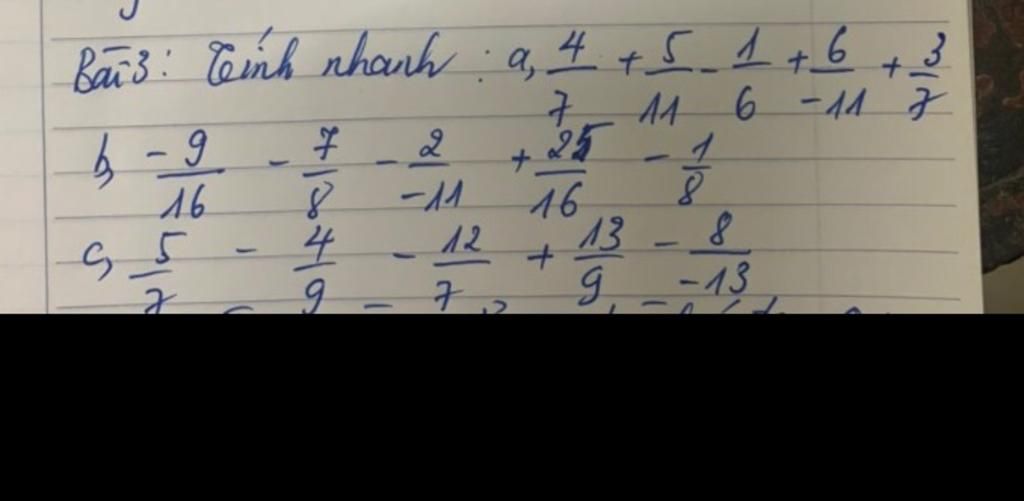 Bài 3: Tính nhanh: a, 4/7 + 5/11 - 1/6 + 6/-11 + 3/7
b, -9/16 - 7/8 - 2/-11 + 25/16 - 1/8
c, 5/7 - 4/9 - 12/7 + 13/9 - 8/-13